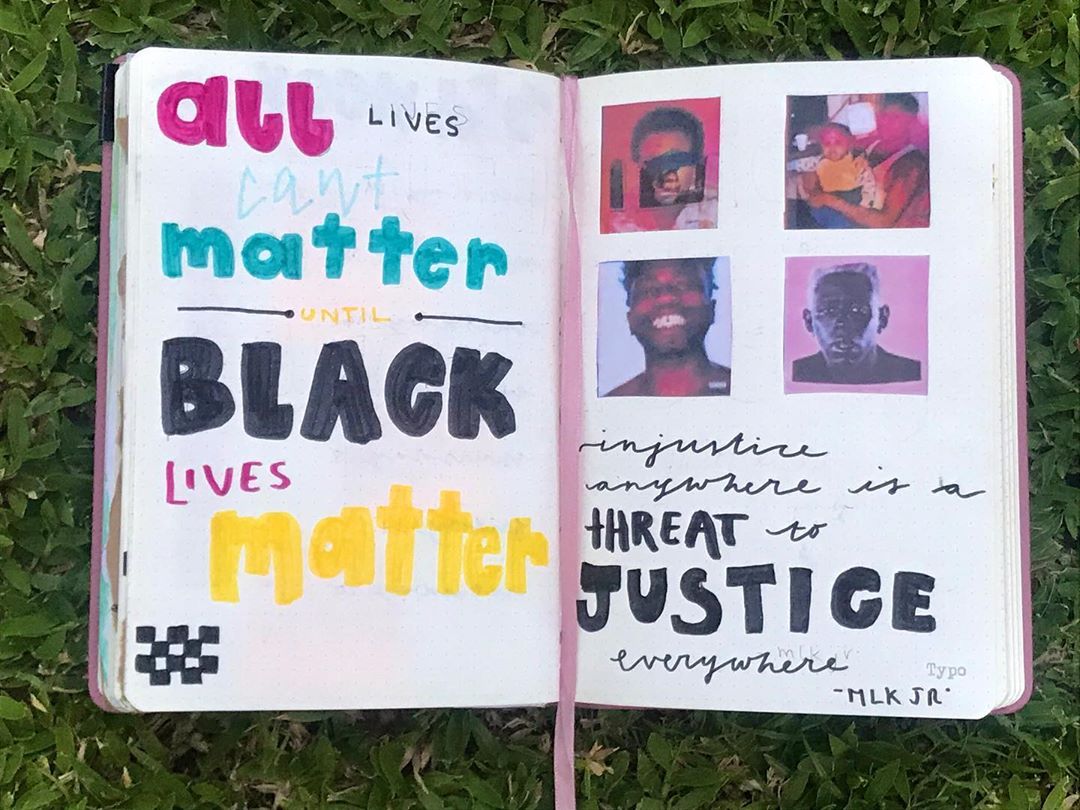 all LIVES
can't
matter
UNTIL
BLACK
LIVES
matter
injustice
anywhere is a
tHREAT to
JUSTICE
everywhere
mlk jr.
Typo
-MLK JR·